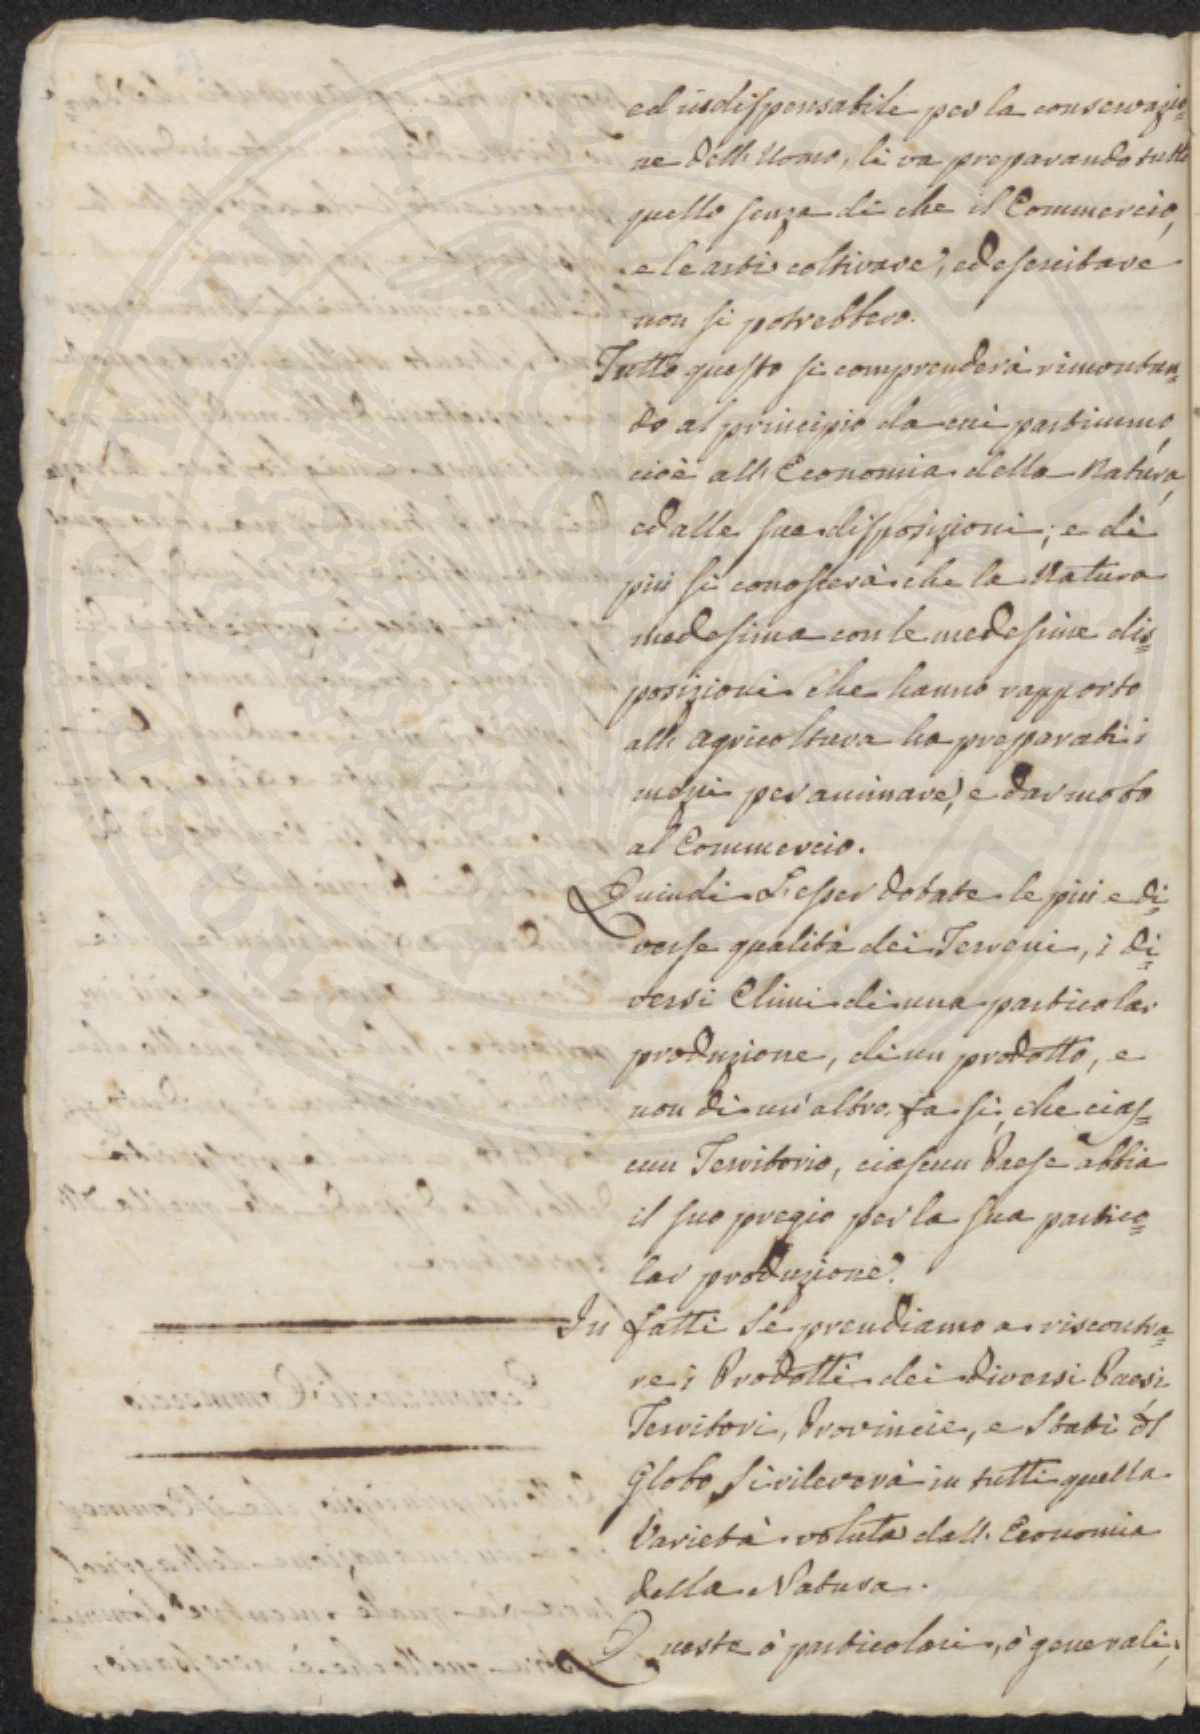 ed indispensabile per la conservazio=
ne dell'Uomo, li va preparando tutto
quello senza di che il Commercio,
e le arti coltivare, ed esercitare
non si potrebbero.
Tutto questo si comprenderà rimontan=
do al principio da cui partimmo,
cioè all'Economia della Natura,
ed alle sue disposizioni; e di
più si conoscerà che la Natura
medesima con le medesime dis=
posizioni che hanno rapporto
all'agricoltura ha preparati i
mezzi per animare, e dar moto
al Commercio.
Quindi l'esser dotate le più e di=
verse qualità dei Terreni, i di=
versi Climi di una particolar
produzione, di un prodotto, e
non di un'altro fa sì, che cias=
cun Territorio, ciascun Paese abbia
il suo pregio per la sua partico=
lar produzione.
In fatti se prendiamo a riscontra=
re i Prodotti dei diversi Paesi,
Territori, Provincie, e Stati del
Globo si rileverà in tutti quella
Varietà voluta dall'Economia
della Natura.
Queste ò particolari, ò generali,